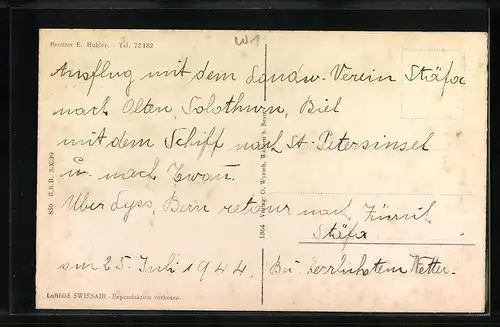 Besitzer E. Hubler. - Tel. 72182
W1
Ausflug mit dem Landw. Verein Stäfa
nach Olten, Solothurn, Biel
mit dem Schiff nach St. Petersinsel
u. nach Twan.
Über Lyss, Bern retour nach Zürich
Stäfa.
am 25. Juli 1944. Bei herrlichstem Wetter.
850 B.R.B. 3.X.39
1864 Verlag: O. Wyrsch, Wabern b. Bern
Luftbild SWISSAIR - Reproduktion verboten.